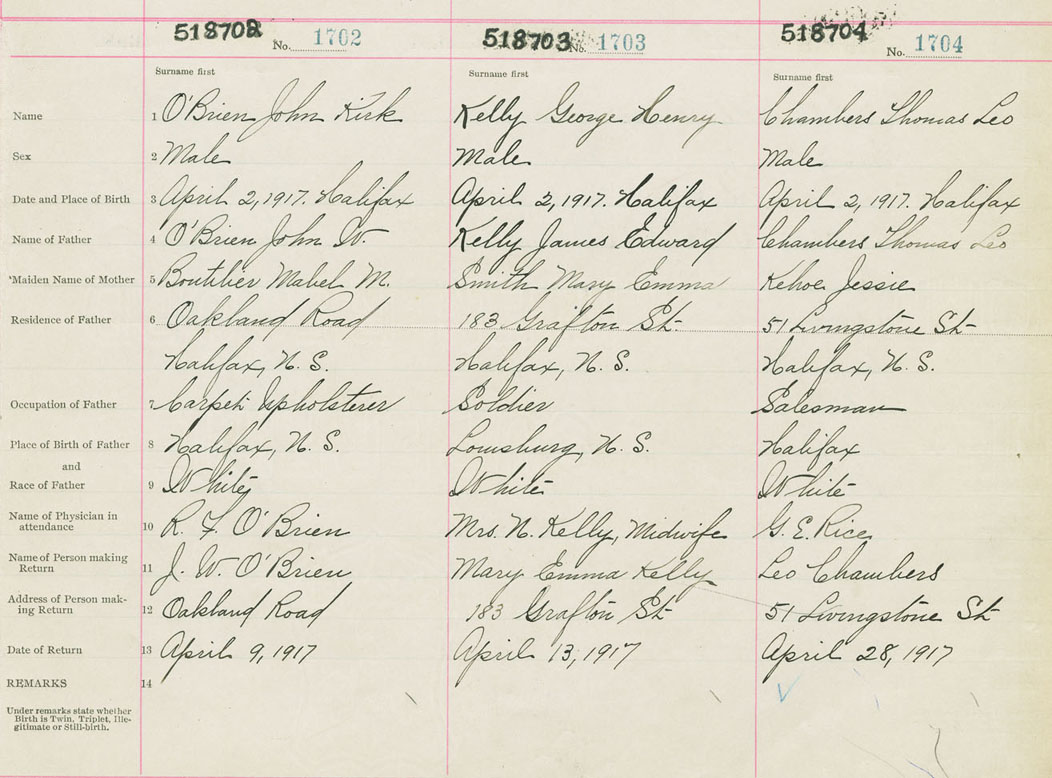 518702 No. 1702 518703 No. 1703 518704 No. 1704
Surname first Surname first Surname first
Name 1 O'Brien John Kirk Kelly George Henry Chambers Thomas Leo
Sex 2 Male Male Male
Date and Place of Birth 3 April 2, 1917. Halifax April 2, 1917. Halifax April 2, 1917. Halifax
Name of Father 4 O'Brien John W. Kelly James Edward Chambers Thomas Leo
Maiden Name of Mother 5 Boutilier Mabel M. Smith Mary Emma Kehoe Jessie
Residence of Father 6 Oakland Road 183 Grafton St. 51 Livingstone St.
Halifax, N. S. Halifax, N. S. Halifax, N. S.
Occupation of Father 7 Carpet Upholsterer Soldier Salesman
Place of Birth of Father 8 Halifax, N. S. Louisburg, N. S. Halifax
and
Race of Father 9 White White White
Name of Physician in
attendance 10 R. F. O'Brien Mrs. N. Kelly, Midwife G. E. Rice
Name of Person making
Return 11 J. W. O'Brien Mary Emma Kelly Leo Chambers
Address of Person mak-
ing Return 12 Oakland Road 183 Grafton St 51 Livingstone St
Date of Return 13 April 9, 1917 April 13, 1917 April 28, 1917
REMARKS 14
Under remarks state whether
Birth is Twin, Triplet, Ille-
gitimate or Still-birth.